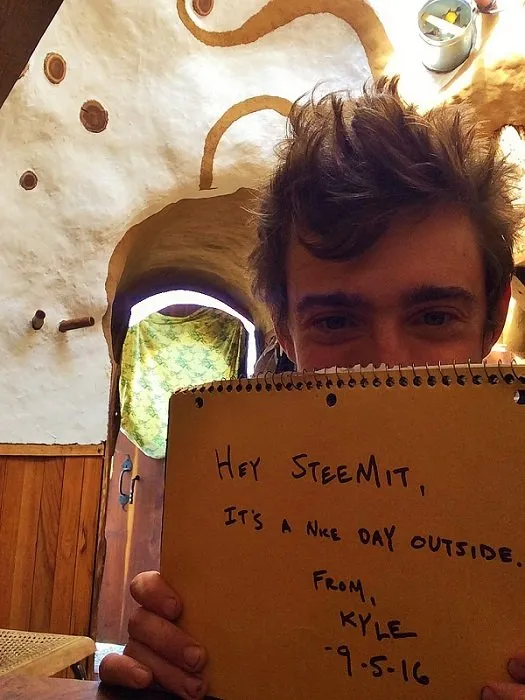 HEY STEEMIT,
IT'S A NICE DAY OUTSIDE.
FROM,
KYLE
-9-5-16